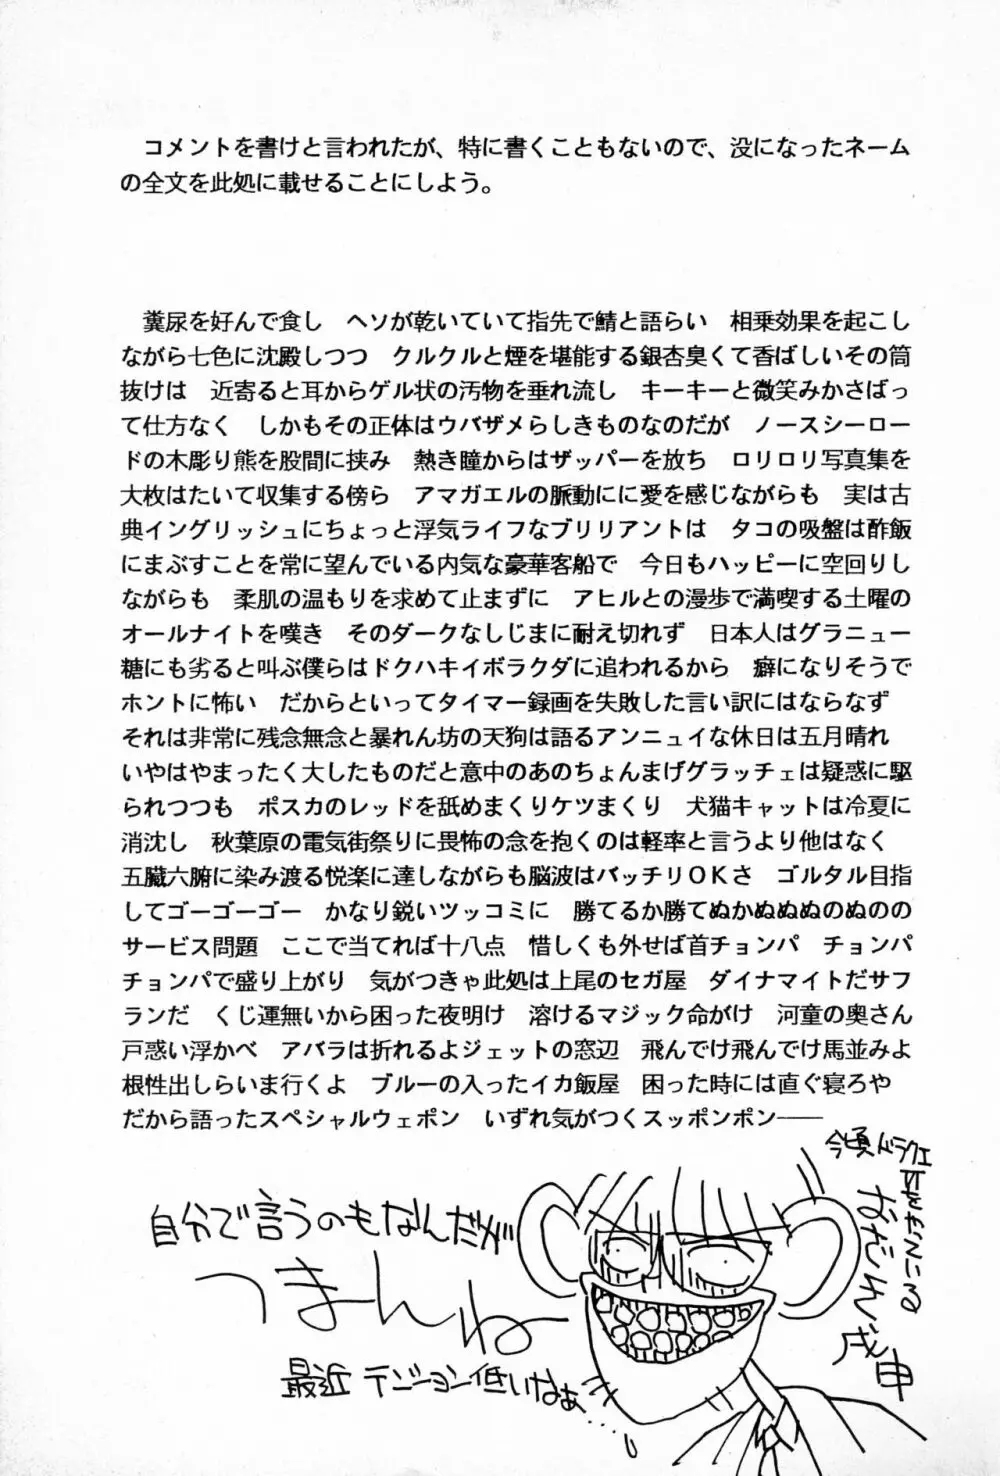 コメントを書けと言われたが、特に書くこともないので、没になったネーム
の全文を此処に載せることにしよう。
糞尿を好んで食し　ヘソが乾いていて指先で鯖と語らい　相乗効果を起こし
ながら七色に沈殿しつつ　クルクルと煙を堪能する銀杏臭くて香ばしいその筒
抜けは　近寄ると耳からゲル状の汚物を垂れ流し　キーキーと微笑みかさばっ
て仕方なく　しかもその正体はウバザメらしきものなのだが　ノースシーロー
ドの木彫り熊を股間に挟み　熱き瞳からはザッパーを放ち　ロリロリ写真集を
大枚はたいて収集する傍ら　アマガエルの脈動にに愛を感じながらも　実は古
典イングリッシュにちょっと浮気ライフなブリリアントは　タコの吸盤は酢飯
にまぶすことを常に望んでいる内気な豪華客船で　今日もハッピーに空回りし
ながらも　柔肌の温もりを求めて止まずに　アヒルとの漫歩で満喫する土曜の
オールナイトを嘆き　そのダークなしじまに耐え切れず　日本人はグラニュー
糖にも劣ると叫ぶ僕らはドクハキイボラクダに追われるから　癖になりそうで
ホントに怖い　だからといってタイマー録画を失敗した言い訳にはならなず
それは非常に残念無念と暴れん坊の天狗は語るアンニュイな休日は五月晴れ
いやはやまったく大したものだと意中のあのちょんまげグラッチェは疑惑に駆
られつつも　ポスカのレッドを舐めまくりケツまくり　犬猫キャットは冷夏に
消沈し　秋葉原の電気街祭りに畏怖の念を抱くのは軽率と言うより他はなく
五臓六腑に染み渡る悦楽に達しながらも脳波はバッチリOKさ　ゴルタル目指
してゴーゴーゴー　かなり鋭いツッコミに　勝てるか勝てぬかぬぬぬのぬのの
サービス問題　ここで当てれば十八点　惜しくも外せば首チョンパ　チョンパ
チョンパで盛り上がり　気がつきゃ此処は上尾のセガ屋　ダイナマイトだサフ
ランだ　くじ運無いから困った夜明け　溶けるマジック命がけ　河童の奥さん
戸惑い浮かべ　アバラは折れるよジェットの窓辺　飛んでけ飛んでけ馬並みよ
根性出しらいま行くよ　ブルーの入ったイカ飯屋　困った時には直ぐ寝ろや
だから語ったスペシャルウェポン　いずれ気がつくスッポンポン――
自分で言うのもなんだが
つまんね
最近テンション低いなぁ…
今頃ドラクエ
VIをやっている
おだわら
戌申